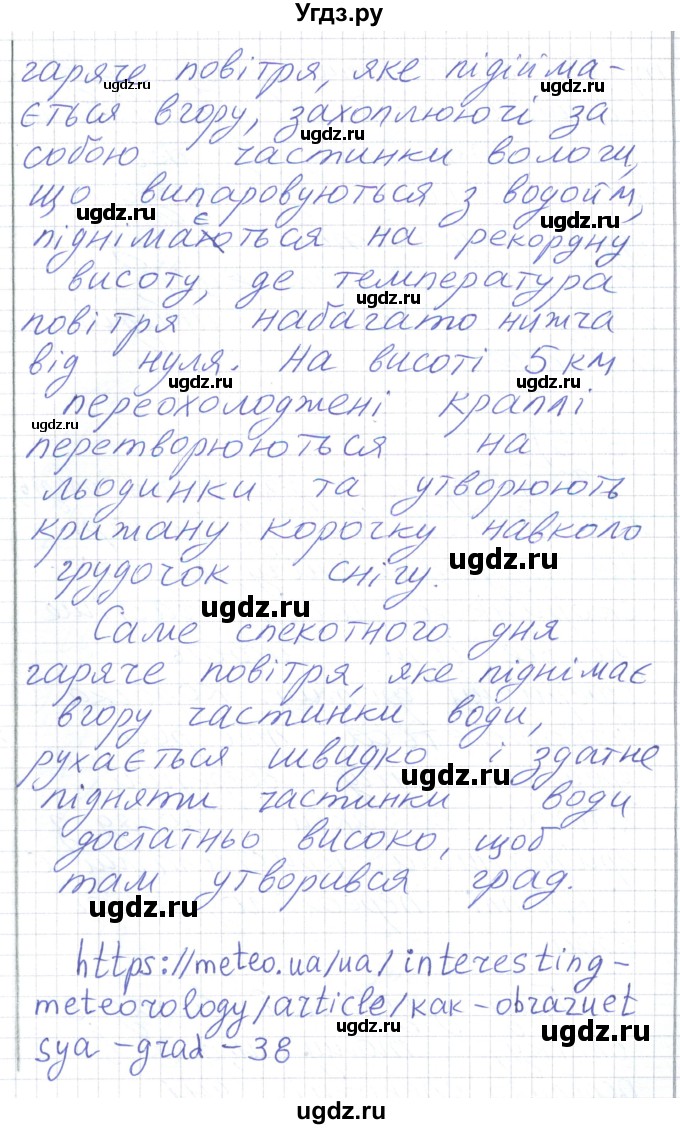 Угдз.ру
гаряче повітря, яке підійма-
ється вгору, захоплюючі за
собою частинки вологи,
що випаровуються з водойм,
піднімається на рекордну
висоту, де температура
повітря набагато нижча
від нуля. На висоті 5 км
переохолоджені краплі
перетворюються на
льодинки та утворюють
крижану корочку навколо
грудочок снігу.
Саме спекотного дня
гаряче повітря, яке піднімає
вгору частинки води,
рухається швидко і здатне
підняти частинки води
достатньо високо, щоб
там утворився град.
https://meteo.ua/ua/interesting-
meteorology/article/kak-obrazuet
sya-grad-38
ugdz.ru